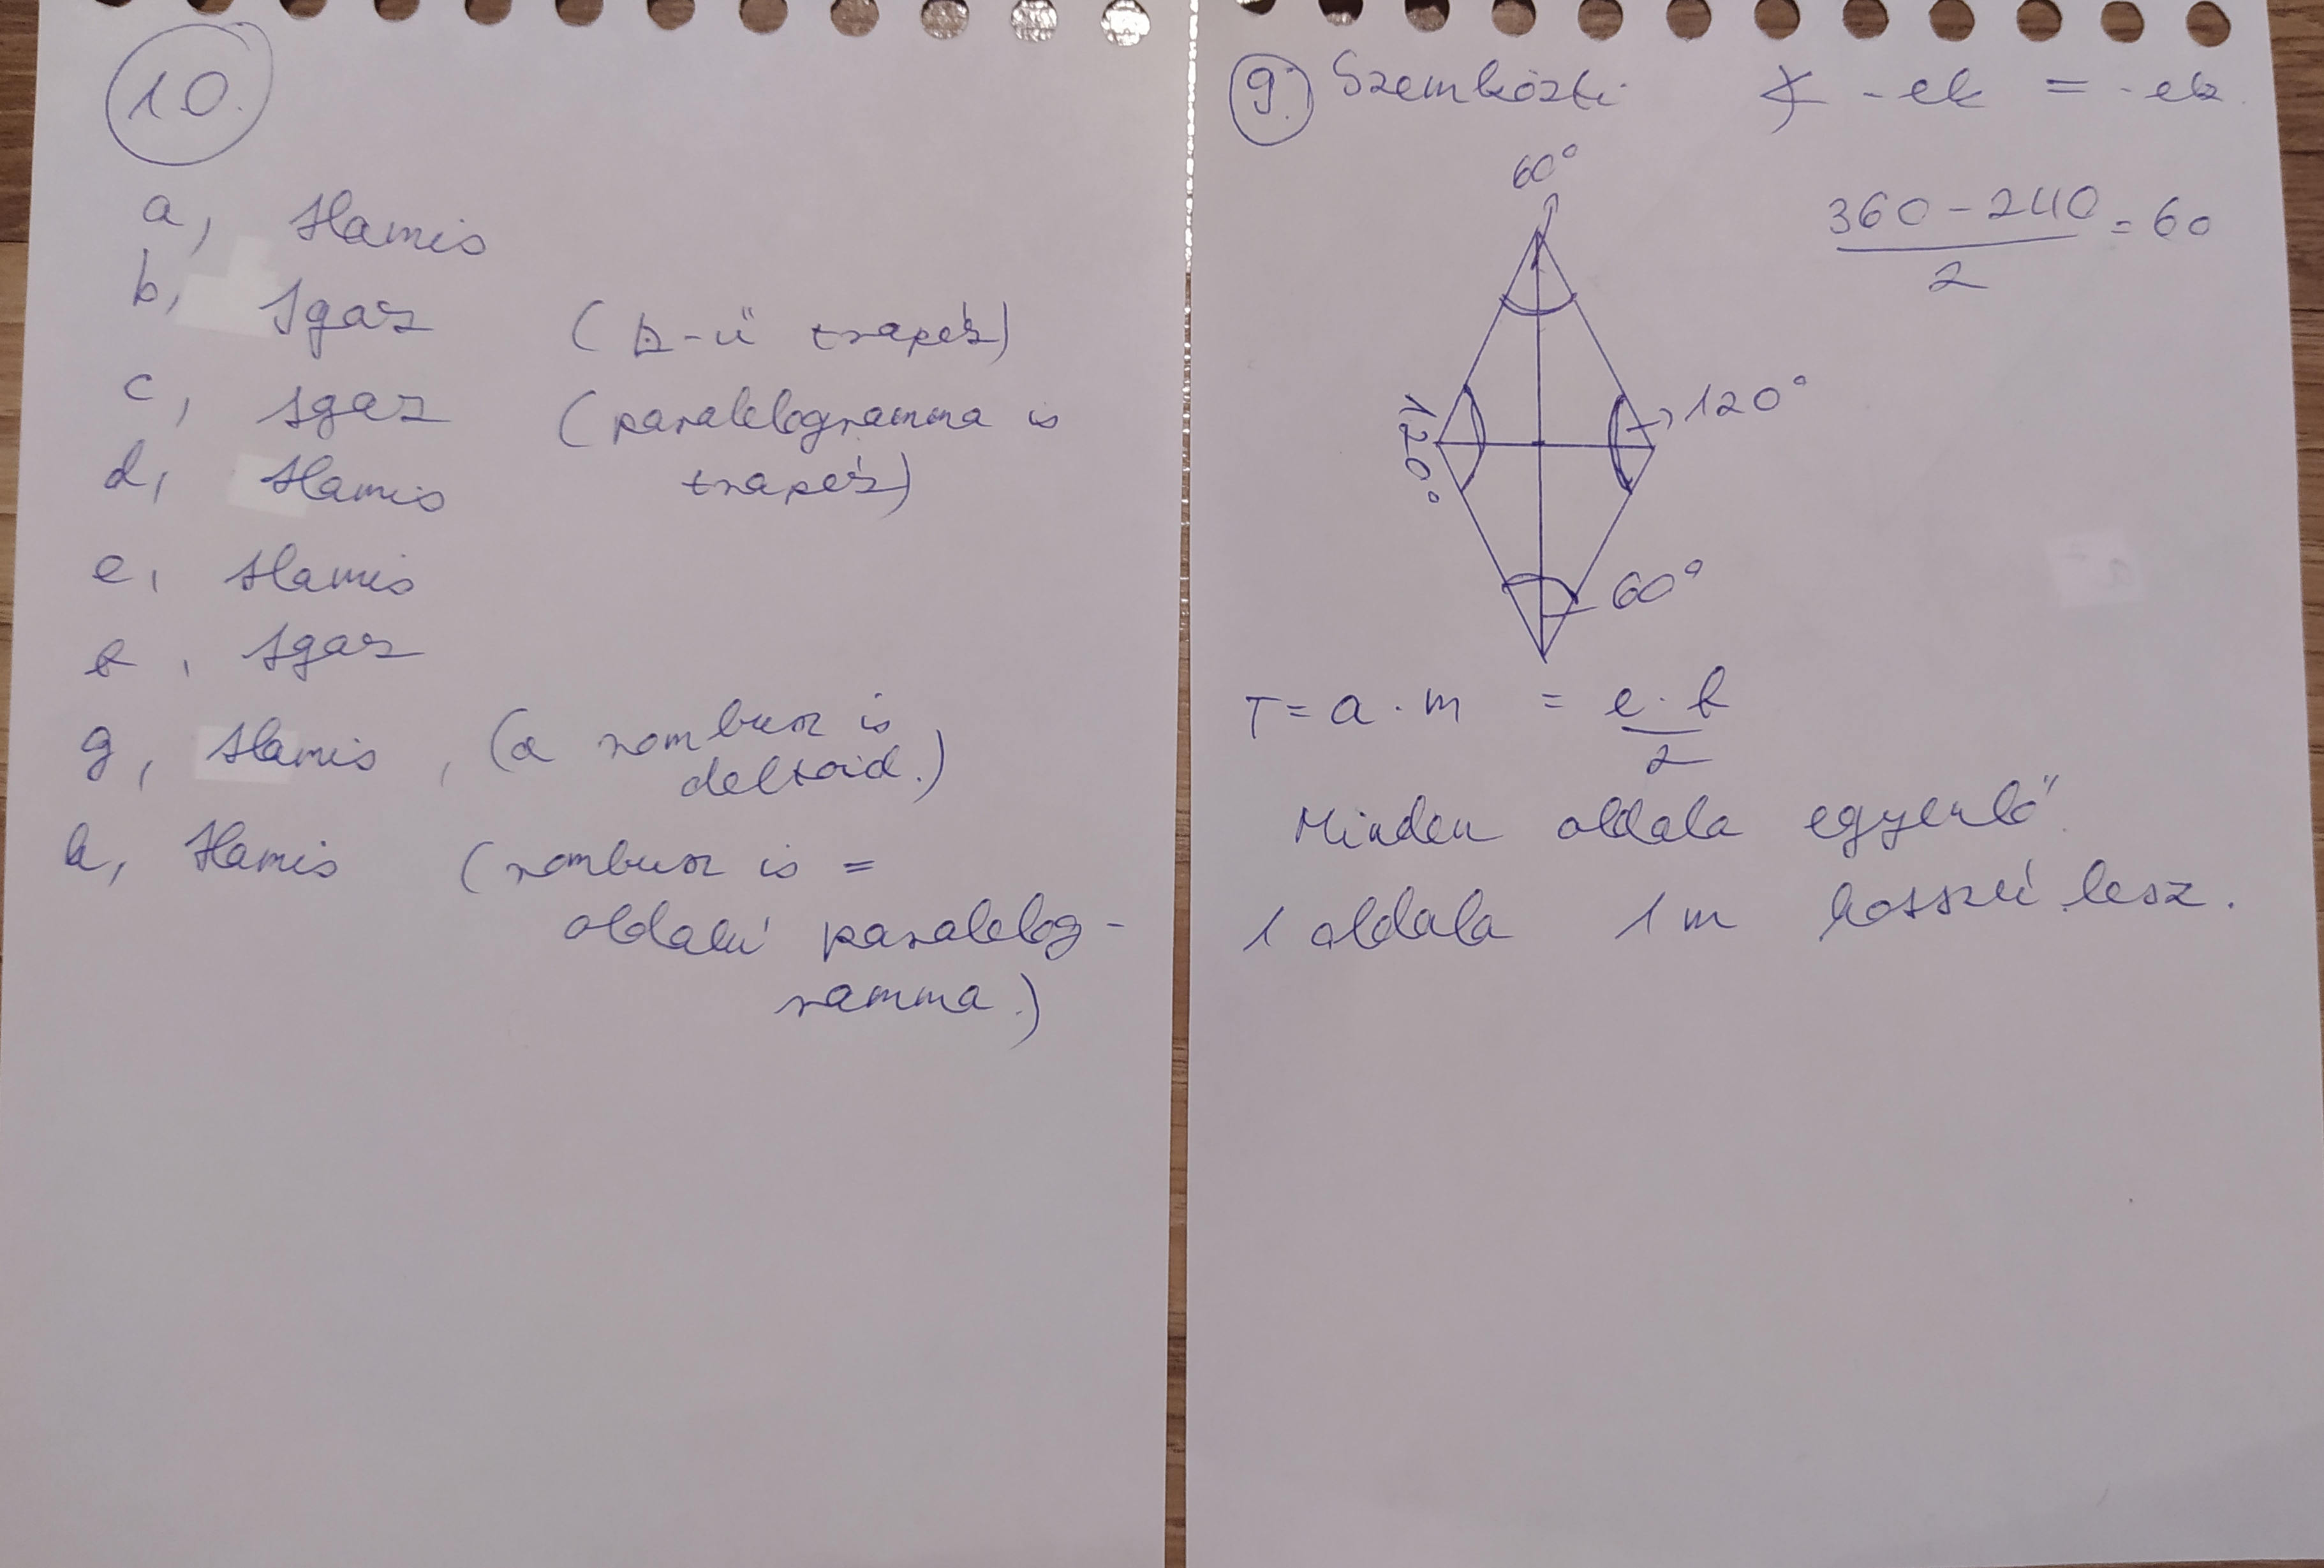 10.
a, Hamis
b, Igaz (⊾-ű trapéz)
c, Igaz (paralelogramma is
trapéz)
d, Hamis
e, Hamis
f, Igaz
g, Hamis, (a rombusz is
deltoid.)
h, Hamis (rombusz is =
oldalú paralelog-
ramma.)
9. Szemközti ∢-ek = -ek.
60°
360 - 240 = 60
2
120°
120°
60°
T = a · m = e · f
2
Minden oldala egyenlő.
1 oldala 1 m hosszú lesz.